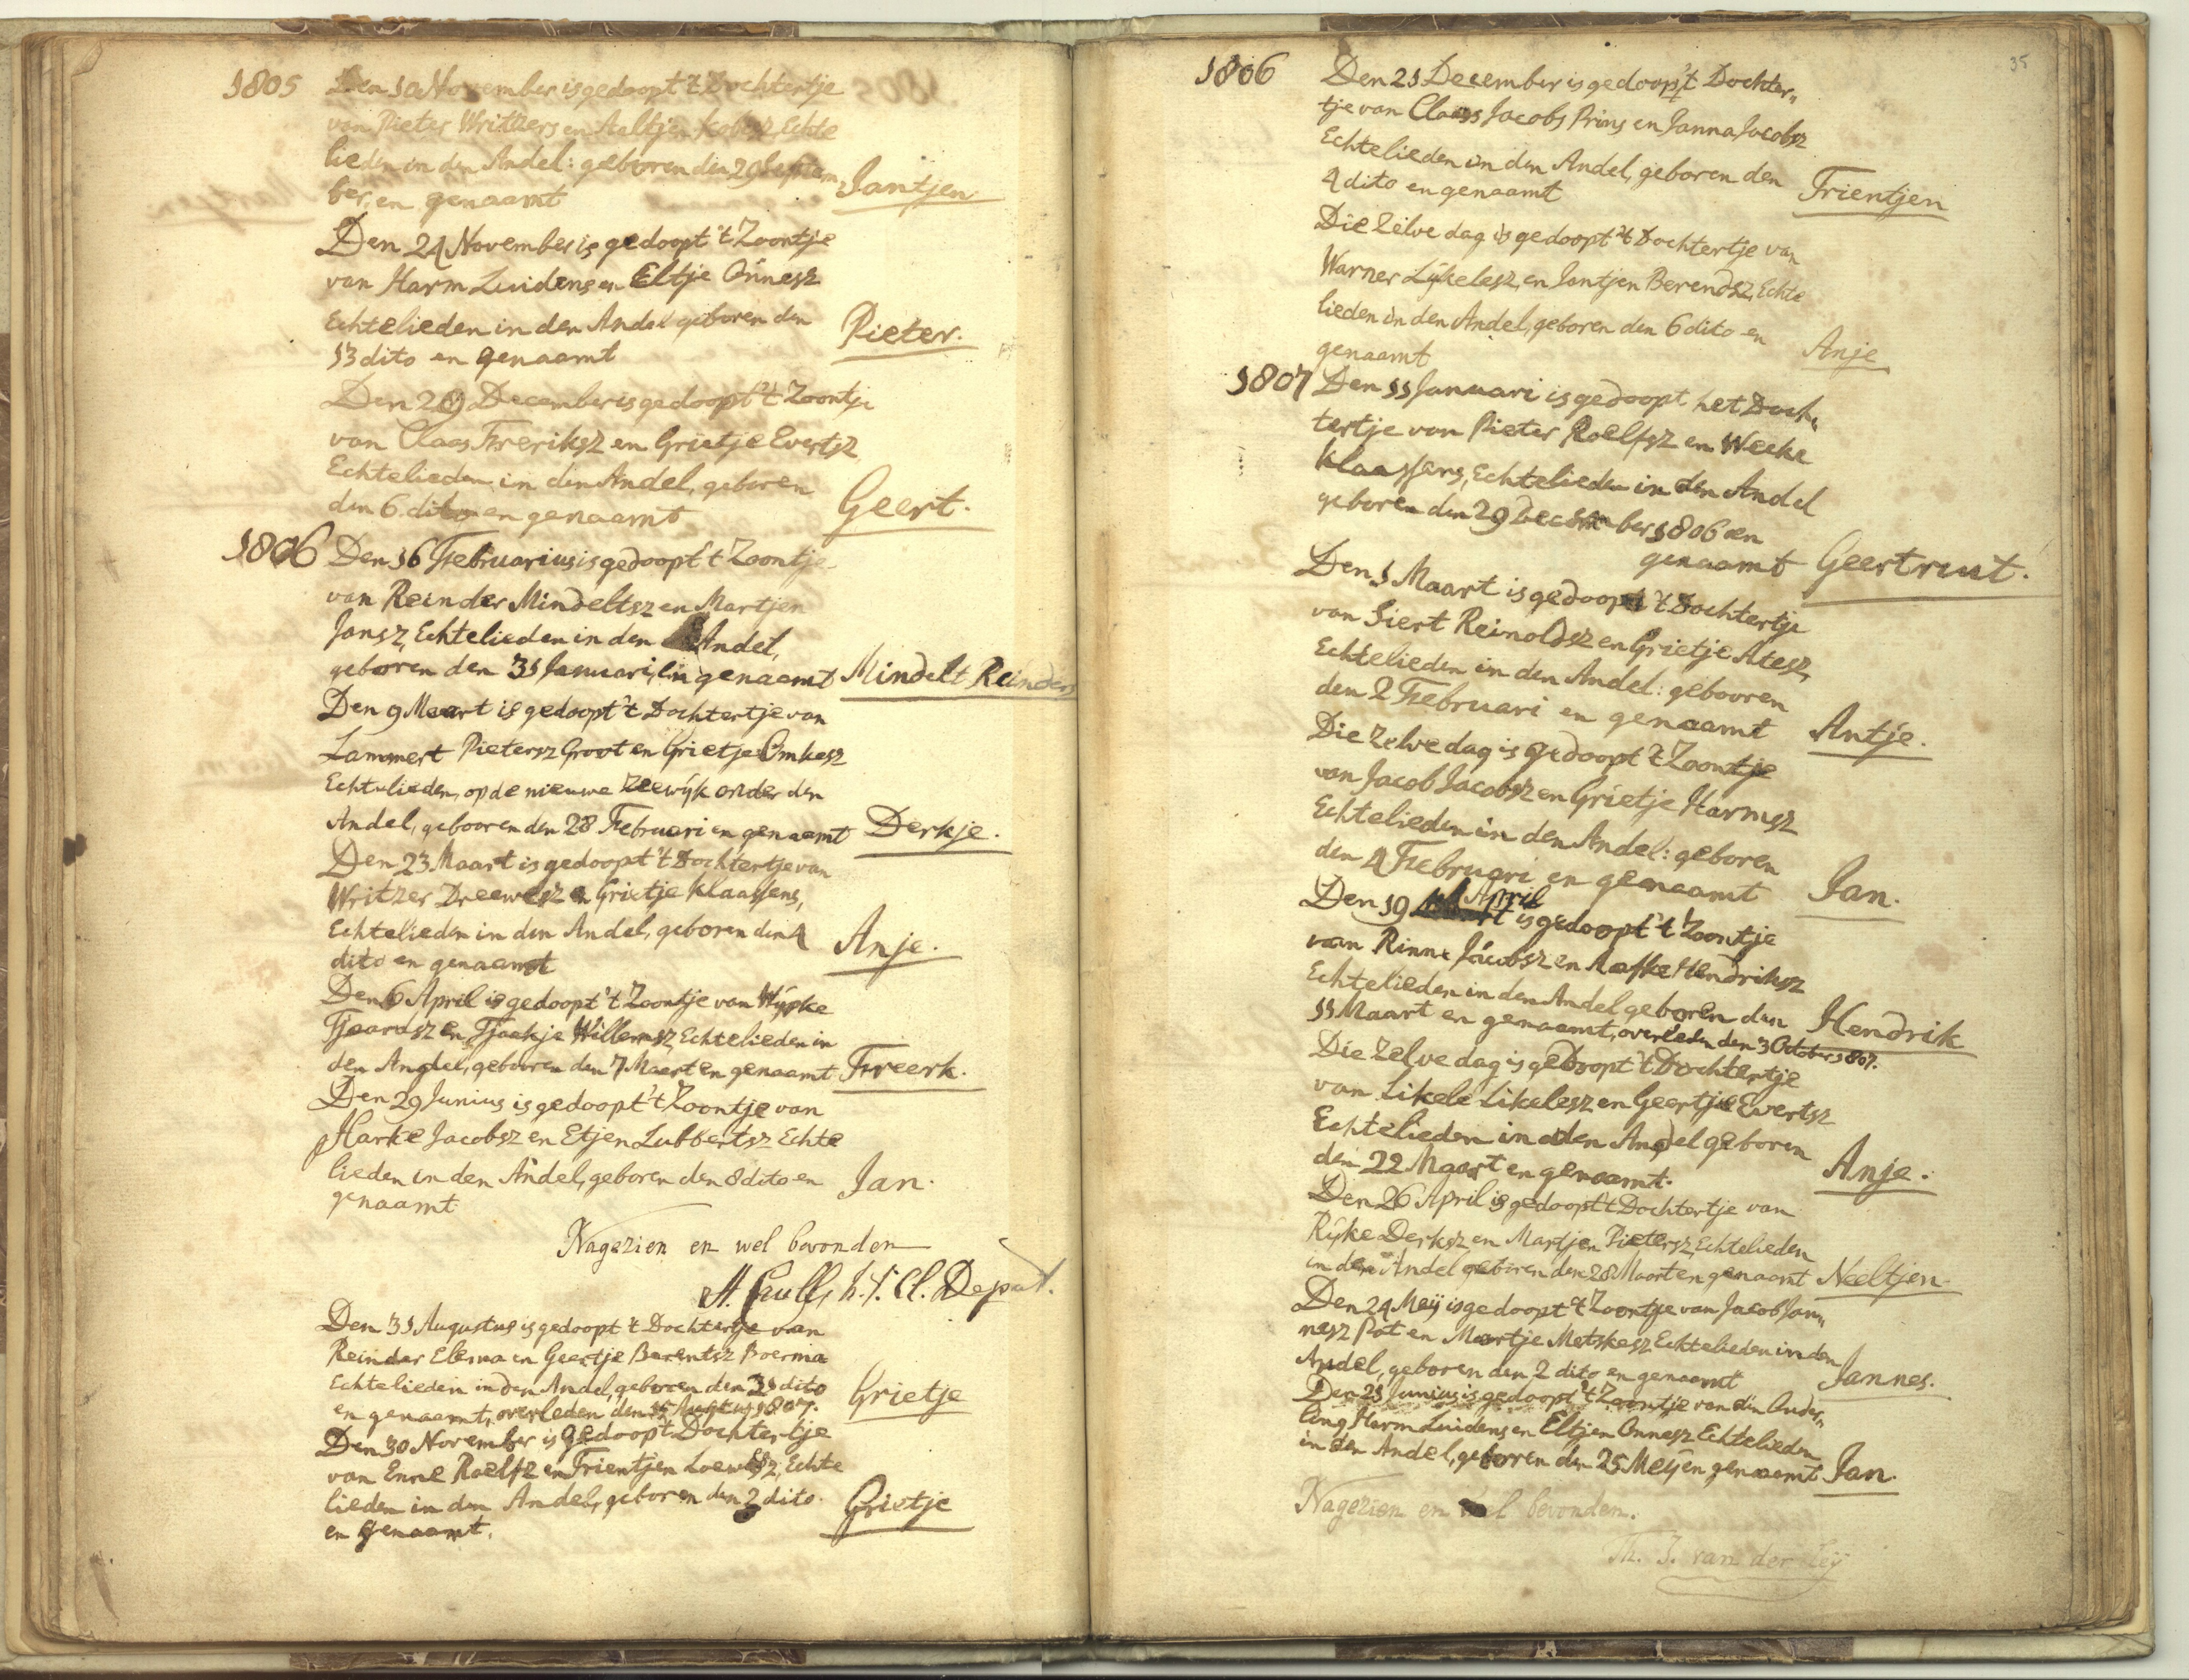 1805 Den 10 November is gedoopt 't Dochtertje
van Pieter Writzers en Aaltjen Echte
lieden in den Andel: gebooren den 29 Septem
ber, en genaamt Jantjen
Den 24 November is gedoopt 't Zoontje
van Harm Luidens en Eltje Onnesz
Echtelieden in den Andel geboren den
13 dito en genaamt Pieter.
Den 29 December is gedoopt 't Zoontje
van Claas Freriksz en Grietje Evertsz
Echtelieden in den Andel, geboren
den 6 dito en genaamt Geert.
1806 Den 16 Februarius is gedoopt 't Zoontje
van Reinder Mindeltsz en Martjen
Jansz, Echtelieden in den Andel,
geboren den 31 Januari, en genaamt Mindelt Reinders
Den 9 Maart is gedoopt 't Dochtertje van
Lammert Pietersz Groot en Grietje Omkesz
Echtelieden, op de nieuwe Zeewijk onder den
Andel, gebooren den 28 Februari en genaamt Derkje.
Den 23 Maart is gedoopt 't Dochtertje van
Writzer Dreewesz en Grietje Klaassens,
Echtelieden in den Andel, geboren den 4
dito en genaamt Anje.
Den 6 April is gedoopt 't Zoontje van Wijpke
Tjaardsz en Tjaakje Willemsz, Echtelieden in
den Andel, gebooren den 7 Maart en genaamt Freerk.
Den 29 Junius is gedoopt 't Zoontje van
Harke Jacobsz en Etjen Lubbertsz Echte
lieden in den Andel, geboren den 8 dito en
genaamt Jan.
Nagezien en wel bevonden
Deput.
Den 31 Augustus is gedoopt 't Dochtertje van
Reinder Elema en Geertje Barentsz Boerma
Echtelieden in den Andel, geboren den 21 dito
en genaamt, overleden den 15 Augtus 1807. Grietje
Den 30 November is gedoopt 't Dochtertje
van Enne Roelfz en Trientjen Loewesz, Echte
lieden in den Andel, geboren den 2 dito
en genaamt. Grietje
35
1806 Den 21 December is gedoopt 't Dochter„
tje van Claas Jacobs Prins en Janna Jacobsz
Echtelieden in den Andel, geboren den
4 dito en genaamt Trientjen
Die Zelve dag is gedoopt 't Dochtertje van
Warner Lijkelesz, en Jantjen Berendsz, Echte
lieden in den Andel, geboren den 6 dito en
genaamt Anje
1807 Den 11 Januari is gedoopt het Doch„
tertje van Pieter Roelfsz en Weeke
Klaassens, Echtelieden in den Andel
geboren den 29 December 1806 en
genaamt Geertruit.
Den 1 Maart is gedoopt 't Dochtertje
van Siert Reinoldsz en Grietje Atesz,
Echtelieden in den Andel: gebooren
den 2 Februari en genaamt Antje.
Die Zelve dag is gedoopt 't Zoontje
van Jacob Jacobsz en Grietje Harmsz
Echtelieden in den Andel: geboren
den 4 Februari en genaamt Jan.
Den 19 April is gedoopt 't Zoontje
van Rinne Jacobsz en Aafke Hendriksz
Echtelieden in den Andel geboren den
11 Maart en genaamt, overleden den 3 October 1807. Hendrik
Die Zelve dag is gedoopt 't Dochtertje
van Likele Likelesz en Geertje Evertsz
Echtelieden in den Andel geboren
den 22 Maart en genaamt. Anje.
Den 26 April is gedoopt 't Dochtertje van
Rijke Derksz en Martjen Pietersz, Echtelieden
in den Andel geboren den 28 Maart en genaamt Neeltjen
Den 24 Meij is gedoopt 't Zoontje van Jacob Jan„
nesz Pot en Martje Metskesz Echtelieden in den
Andel, geboren den 2 dito en genaamt Jannes.
Den 21 Junius is gedoopt 't Zoontje van din Ouder„
ling Harm Luidens en Eltjen Onnesz Echtelieden
in den Andel, gebooren den 25 Meij en genaamt Jan.
Nagezien en wel bevonden.
Th. J. van der Leij